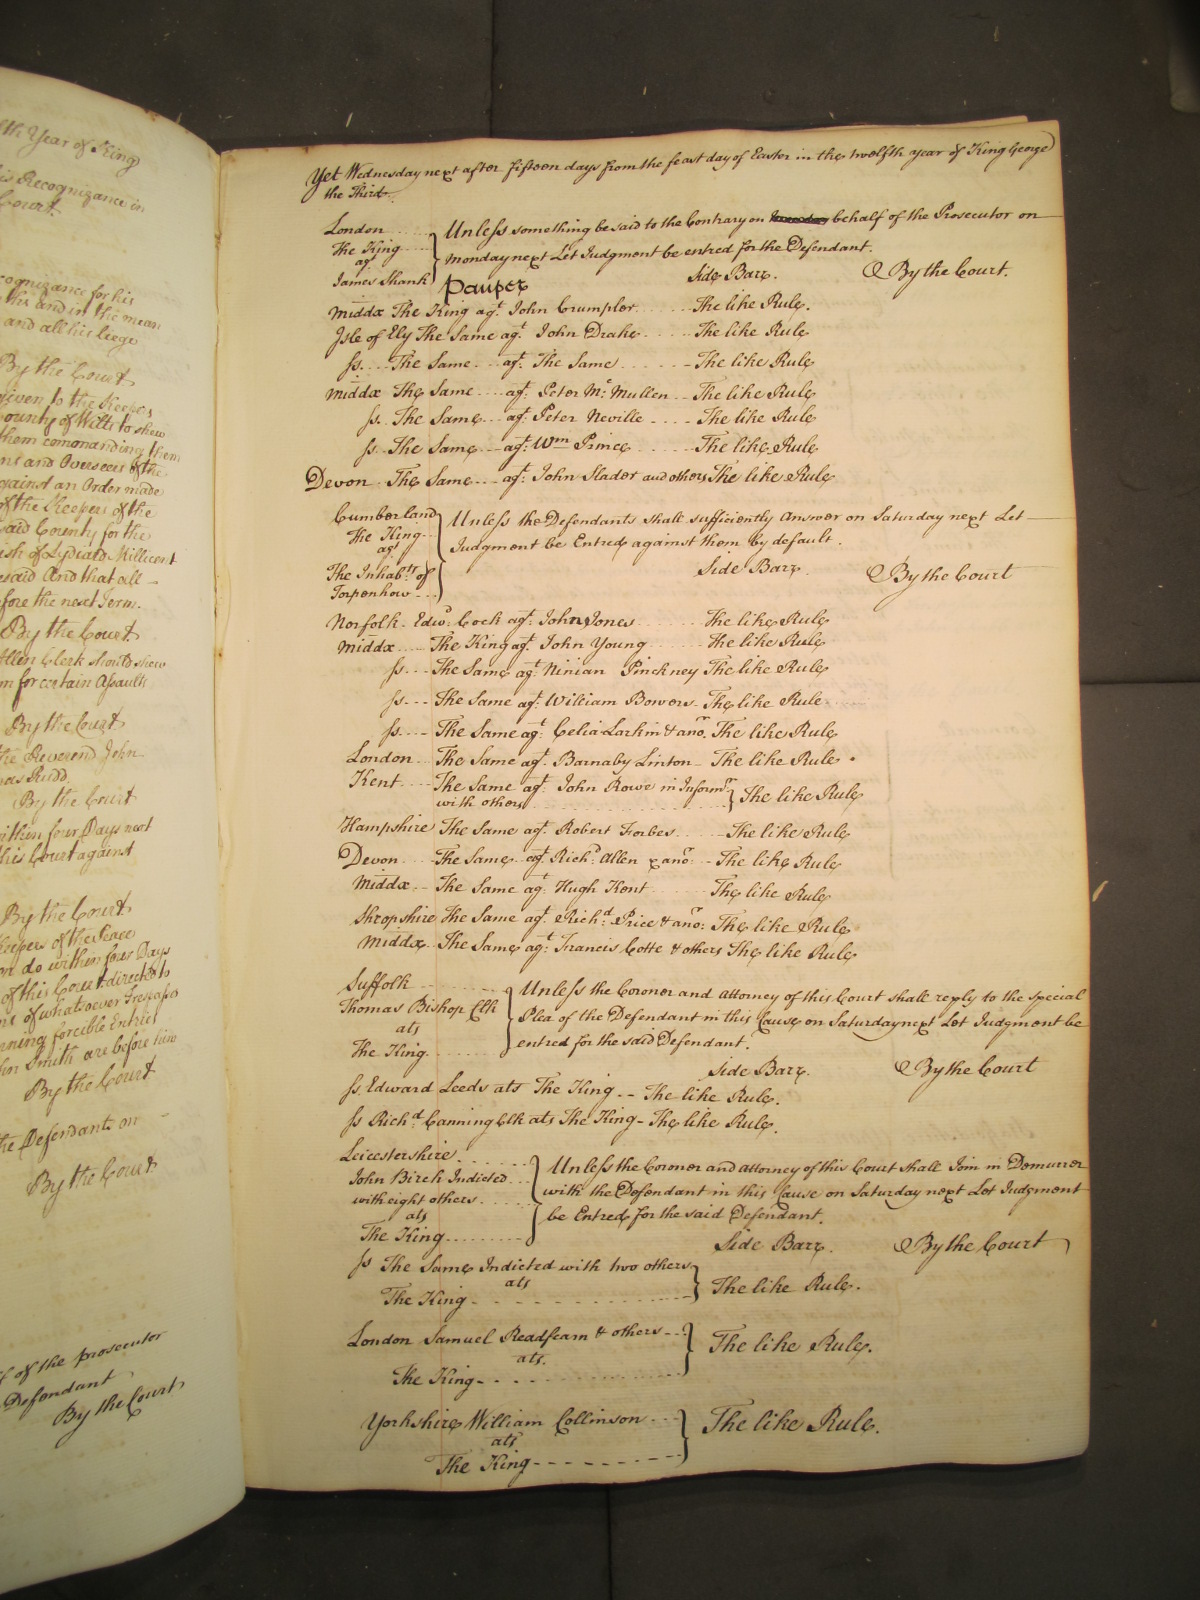 th Year of King
is Recognizance in
Court.
cognizance for his
this and in the mean
and all his liege
By the Court
given to the Keepers
County of Wilts to shew
them comanding them
ns and Overseers of the
against an Order made
of the Keepers of the
said County for the
ish of Lydiard Millicent
esaid And that all
fore the next Term.
By the Court
Allen Clerk should shew
m for certain Assaults
By the Court
The Reverend John
as Rudd.
By the Court
within four Days next
this Court against
By the Court
Keepers of the Peace
on do within four Days
of this Court directed to
ns of whatsoever Trespasses
rning forcible Entries
hn Smith are before him
By the Court
the Defendants on
By the Court
f of the prosecutor
Defendant
By the Court
Yet Wednesday next after fifteen days from the feast day of Easter in the twelfth year of King George
the Third.
London Unless something be said to the Contrary on behalf of the Prosecutor on
The King
agt Monday next Let Judgment be entred for the Defendant.
James Shank Pauper Side Barr. By the Court.
Middx The King agt. John Crumpler The like Rule.
Isle of Ely The Same agt. John Drake The like Rule
ss. The Same agt. The Same The like Rule
Middx The Same agt. Peter Mc Mullen The like Rule
ss. The Same agt. Peter Neville The like Rule
ss. The Same agt. Wm Prince The like Rule
Devon The Same agt. John Slader and others The like Rule
Cumberland Unless the Defendants shall sufficiently Answer on Saturday next Let
The King
agt Judgment be Entred against them by default.
The Inhabts of Side Barr. By the Court
Torpenhow
Norfolk Edwd. Cock agt. John Jones The like Rule
Middx The King agt. John Young The like Rule
ss. The Same agt. Ninian Pinckney The like Rule
ss. The Same agt. William Bowers The like Rule
ss. The Same agt. Celia Larkin & anor. The like Rule
London The Same agt. Barnaby Linton The like Rule.
Kent The Same agt. John Rowe in Informn
with others The like Rule
Hampshire The Same agt. Robert Forbes The like Rule
Devon The Same agt. Richd. Allen & anor. The like Rule
Middx The Same agt. Hugh Kent The like Rule
Shropshire The Same agt. Richd. Price & anor. The like Rule
Middx The Same agt. Francis Cotte & others The like Rule
Suffolk Unless the Coroner and attorney of this Court shall reply to the special
Thomas Bishop Clk Plea of the Defendant in this Cause on Saturday next Let Judgment be
ats
The King entred for the said Defendant.
Side Barr. By the Court
ss. Edward Leeds ats The King The like Rule.
ss Richd. Canning Clk ats The King The like Rule.
Leicestershire Unless the Coroner and attorney of this Court shall Join in Demurrer
John Birch Indicted
with eight others with the Defendant in this Cause on Saturday next Let Judgment
ats be Entred for the said Defendant.
The King Side Barr. By the Court
ss The Same Indicted with two others
ats The like Rule.
The King
London Samuel Readfearn & others
ats. The like Rule.
The King
Yorkshire William Collinson
ats The like Rule.
The King